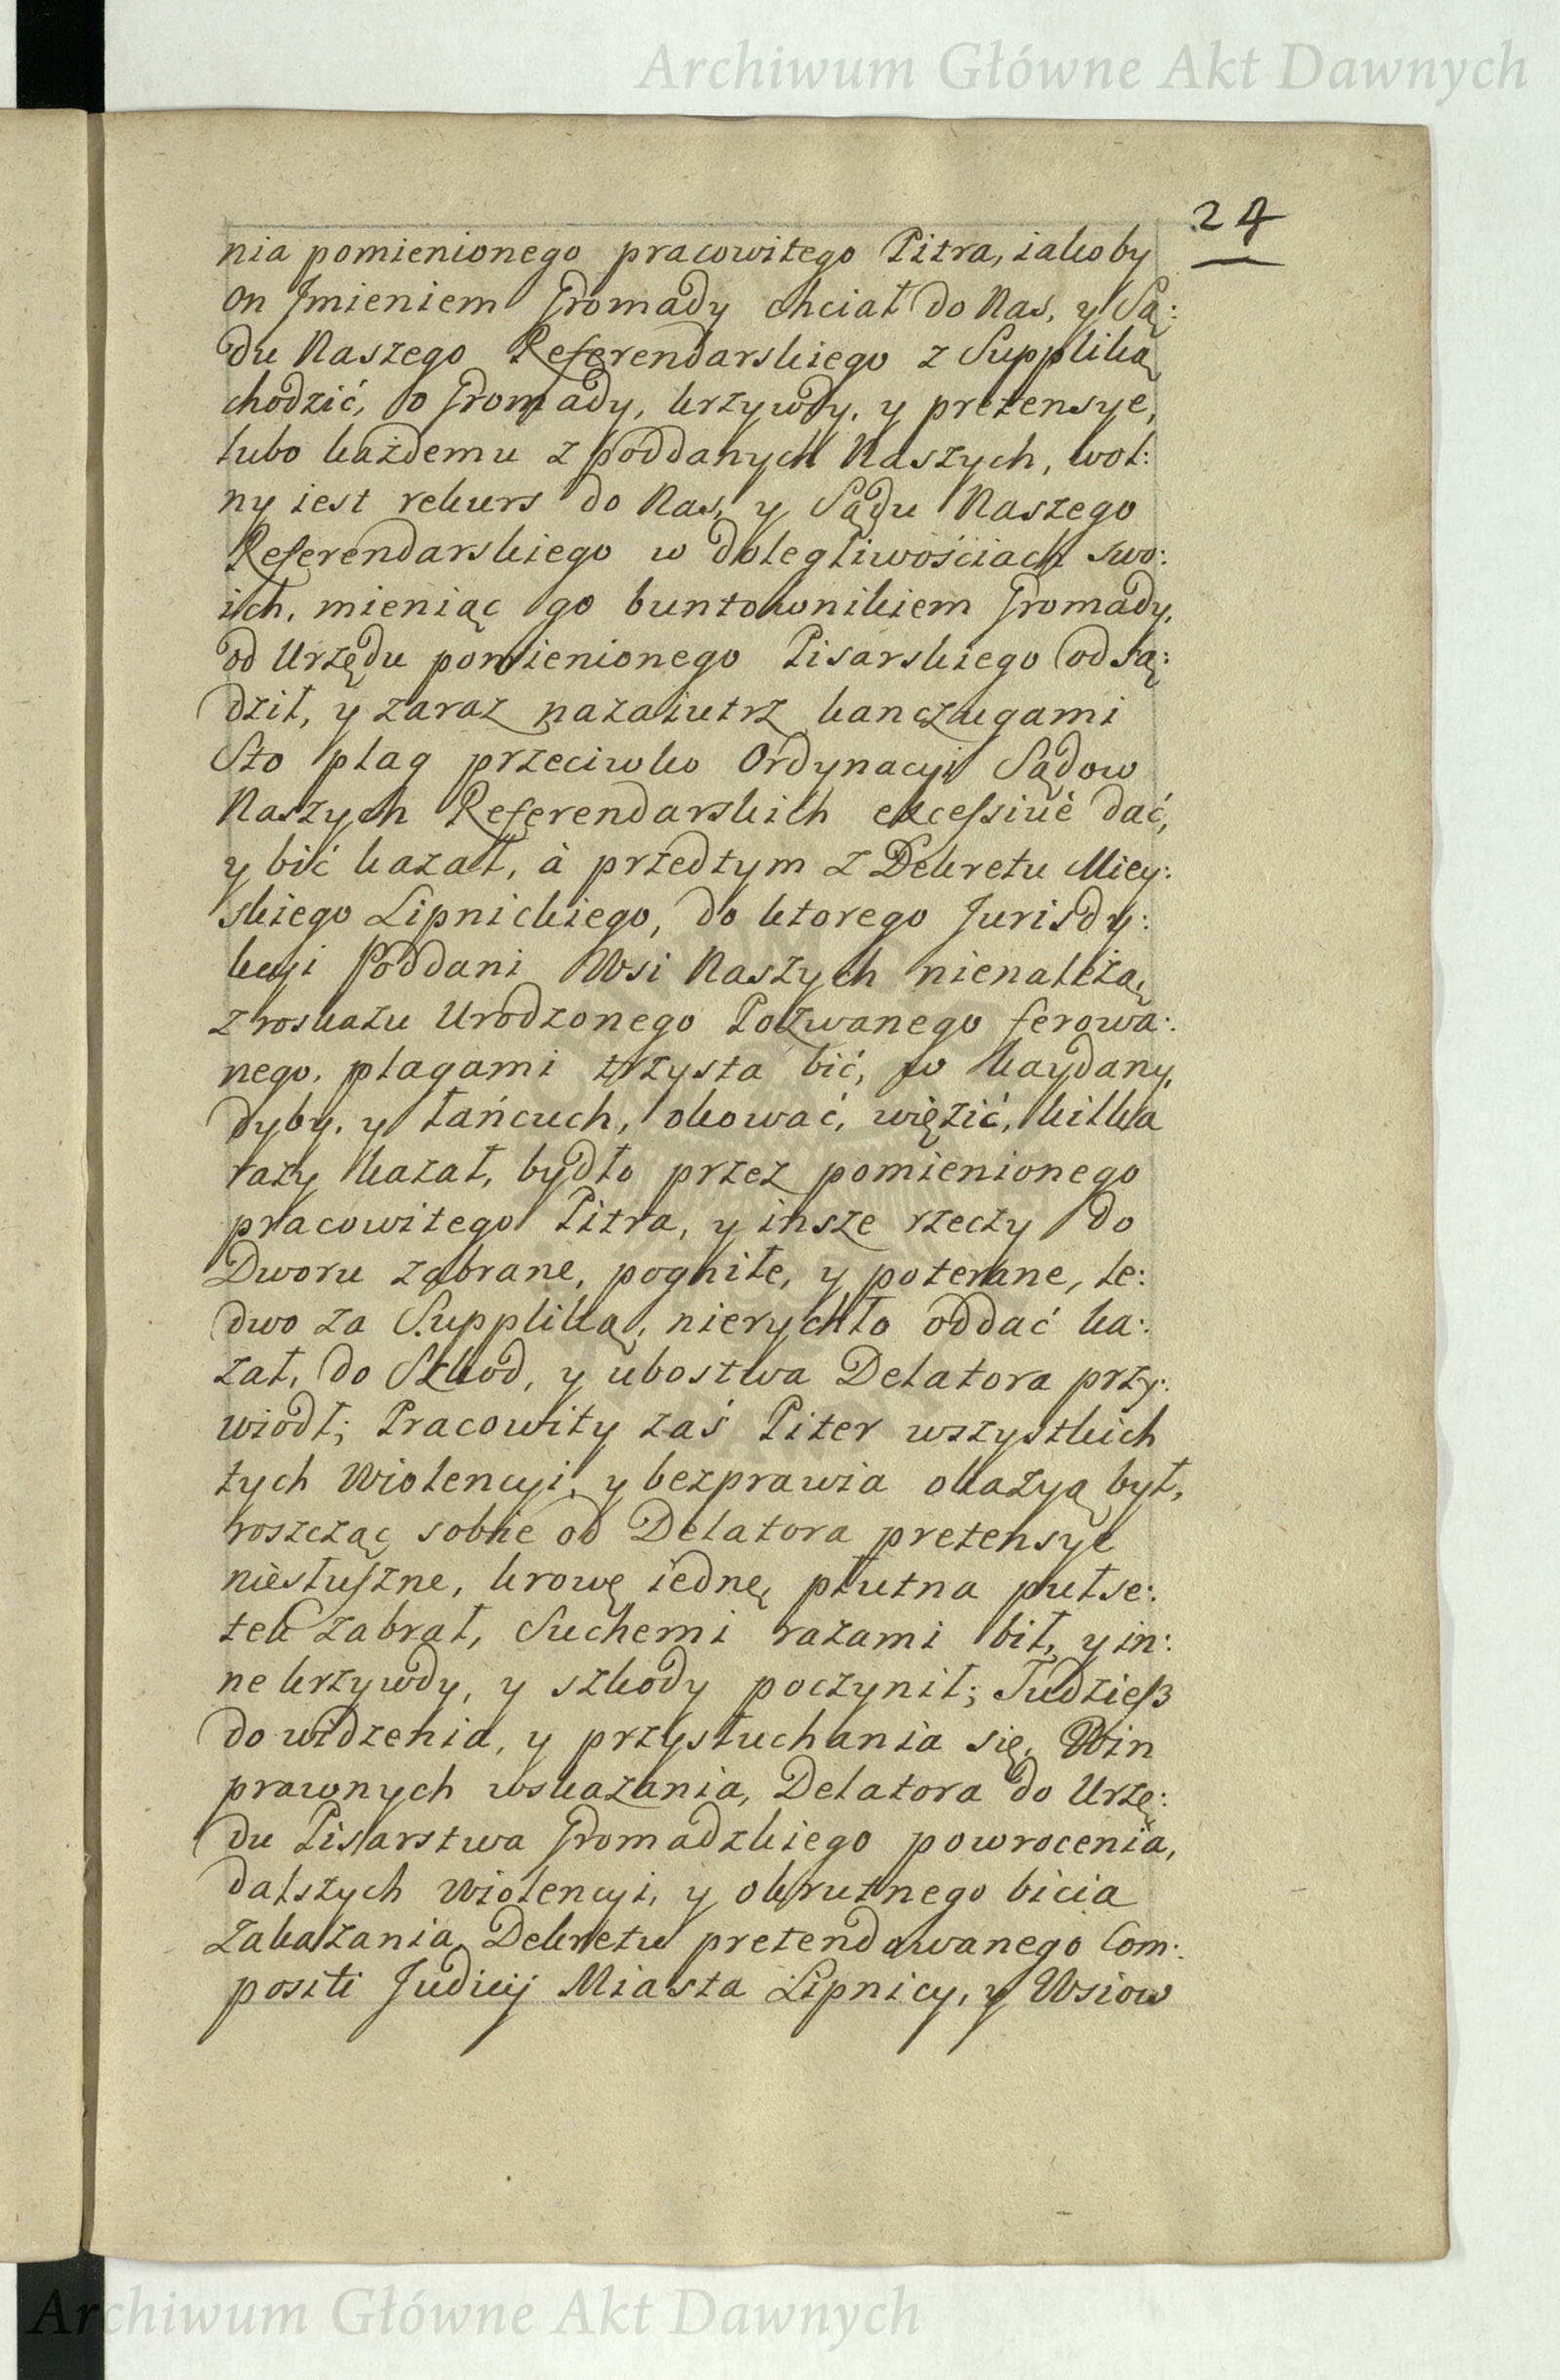 Archiwum Główne Akt Dawnych
24
nia pomienionego pracowitego Pitra, iakoby
on Jmieniem Gromady chciał do Nas, y Są:
du Naszego Referendarskiego z Suppliką
chodzić, o Gromady, krzywdy, y pretensye,
lubo każdemu z poddanych Naszych, wol:
ny iest rekurs do Nas, y Sądu Naszego
Referendarskiego w dolegliwościach swo:
ich, mieniąc go buntownikiem Gromady,
od Urzędu pomienionego Pisarskiego odsą:
dził, y zaraz nazaiutrz kanczugami
Sto plag przeciwko Ordynacyi Sądow
Naszych Referendarskich excessivè dać,
y bić kazał, à przedtym z Dekretu Miey:
skiego Lipnickiego, do ktorego Jurisdy:
kcyi Poddani Wsi Naszych nienależą,
z roskazu Urodzonego Pozwanego ferowa:
nego, plagami trzysta bić, w kaydany,
dyby, y łańcuch, okować, więzić, kilka
razy kazał, bydło przez pomienionego
pracowitego Pitra, y insze rzeczy do
Dworu zabrane, pogniłe, y poterane, le:
dwo za Suppliką, nierychło oddać ka:
zał, do Szkod, y ubostwa Delatora przy:
wiodł; Pracowity zaś Piter wszystkich
tych Wiolencyi, y bezprawia okazyą był,
roszcząc sobie od Delatora pretensye
niesłuszne, krowę iednę, płutna pułse:
tek zabrał, Suchemi razami bił, y in:
ne krzywdy, y szkody poczynił; Tudzieß
do widzenia, y przysłuchania się, Win
prawnych wskazania, Delatora do Urzę:
du Pisarstwa Gromadzkiego powrocenia,
dalszych Wiolencyi, y okrutnego bicia
zakazania, Dekretu pretendowanego Com:
positi Judicij Miasta Lipnicy, y Wsiow
Archiwum Główne Akt Dawnych